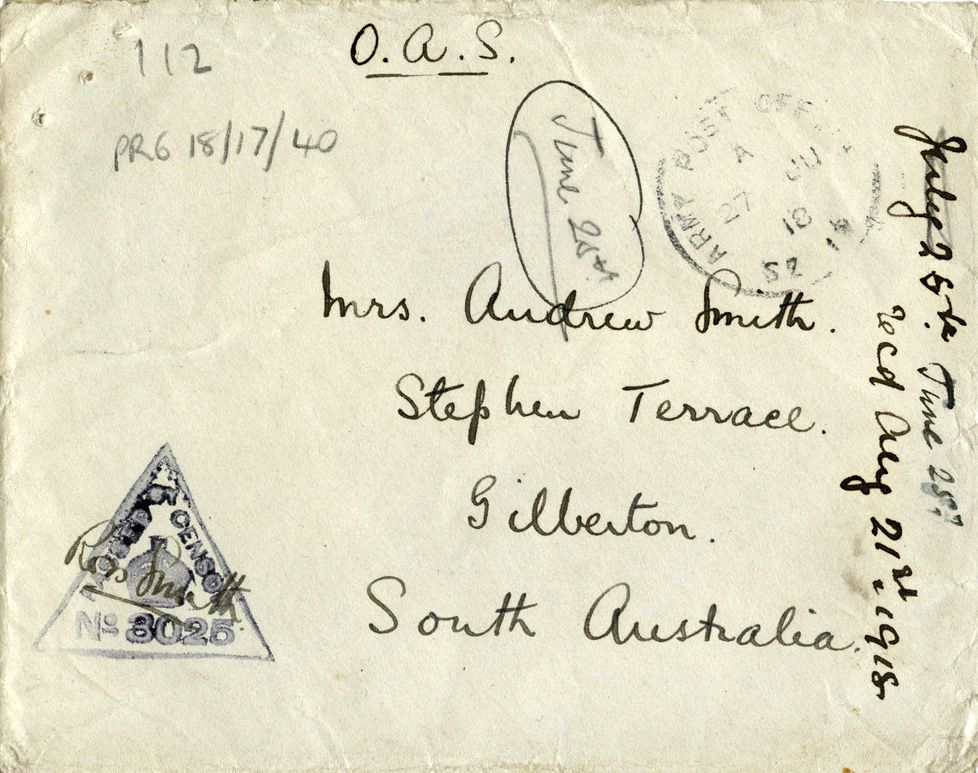 112
O.A.S.
PRG 18/17/40
June 25th
ARMY POST OFFICE
A
27 JU
18
SZ 14
Mrs. Andrew Smith.
Stephen Terrace.
Gilberton.
South Australia.
July 25th. June 25?
recd Aug 21st. 1918
PASSED BY CENSOR
No 3025
Ross Smith